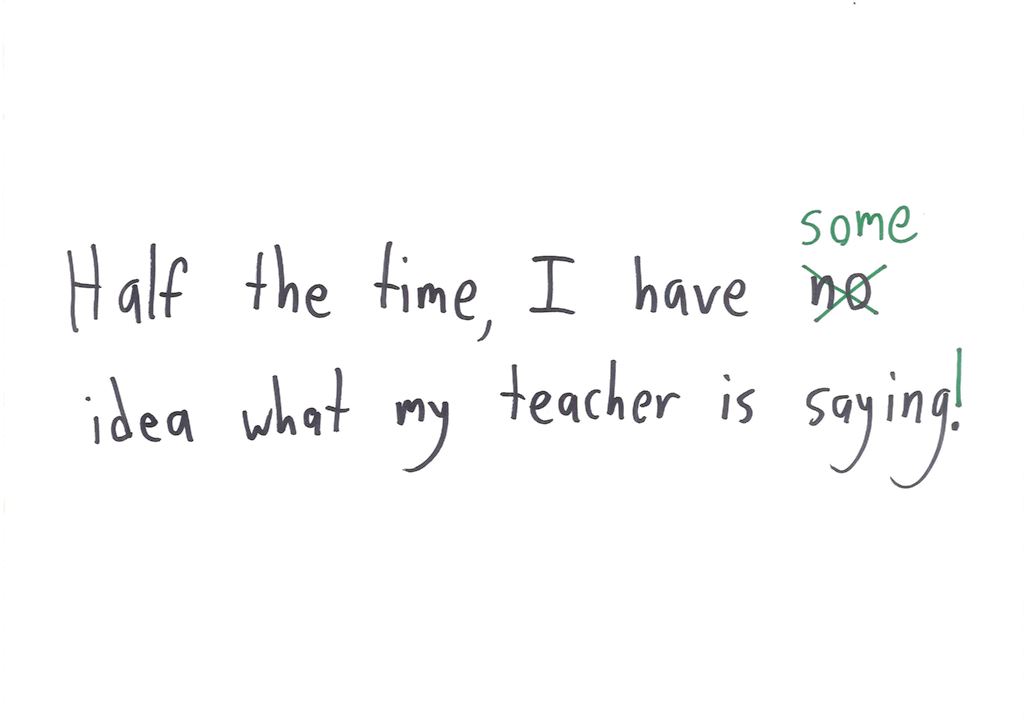 some
Half the time, I have no
idea what my teacher is saying!